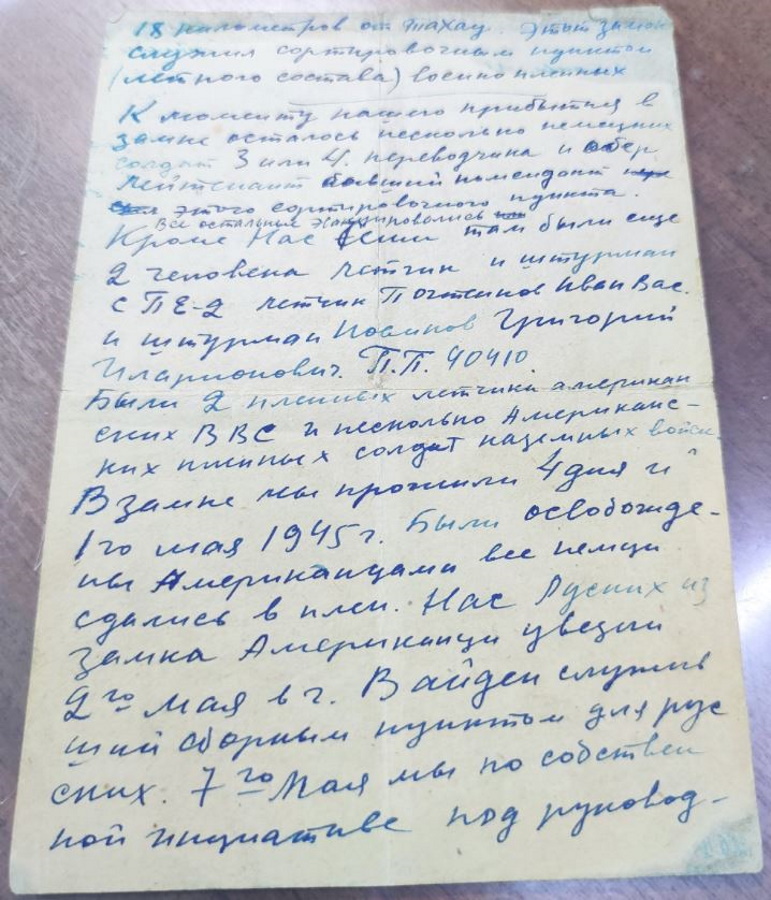 18 километров от Тахау. Этот замок
служил сортировочным пунктом
(летного состава) военнопленных
К моменту нашего прибытия в
замке осталось несколько немецких
солдат 3 или 4. переводчика и обер
лейтенант бывший комендант
этого сортировочного пункта.
Все остальные эвакуировались
Кроме Нас там были еще
2 человека летчик и штурман
с ПЕ-2 летчик Иван Вас.
и штурман Григорий
Иларионович. П.П. 40410.
Были 2 пленных летчики американ
ских ВВС и несколько Американс-
ких пленных солдат наземных войск.
В замке мы прожили 4 дня и
1го мая 1945 г. Были освобожде-
ны Американцами все немцы
сдались в плен. Нас Руских из
замка Американци увезли
2го мая в г. Вайден служив
ший сборным пунктом для рус
ских. 7го Мая мы по собствен
ной инциативе под руковод-